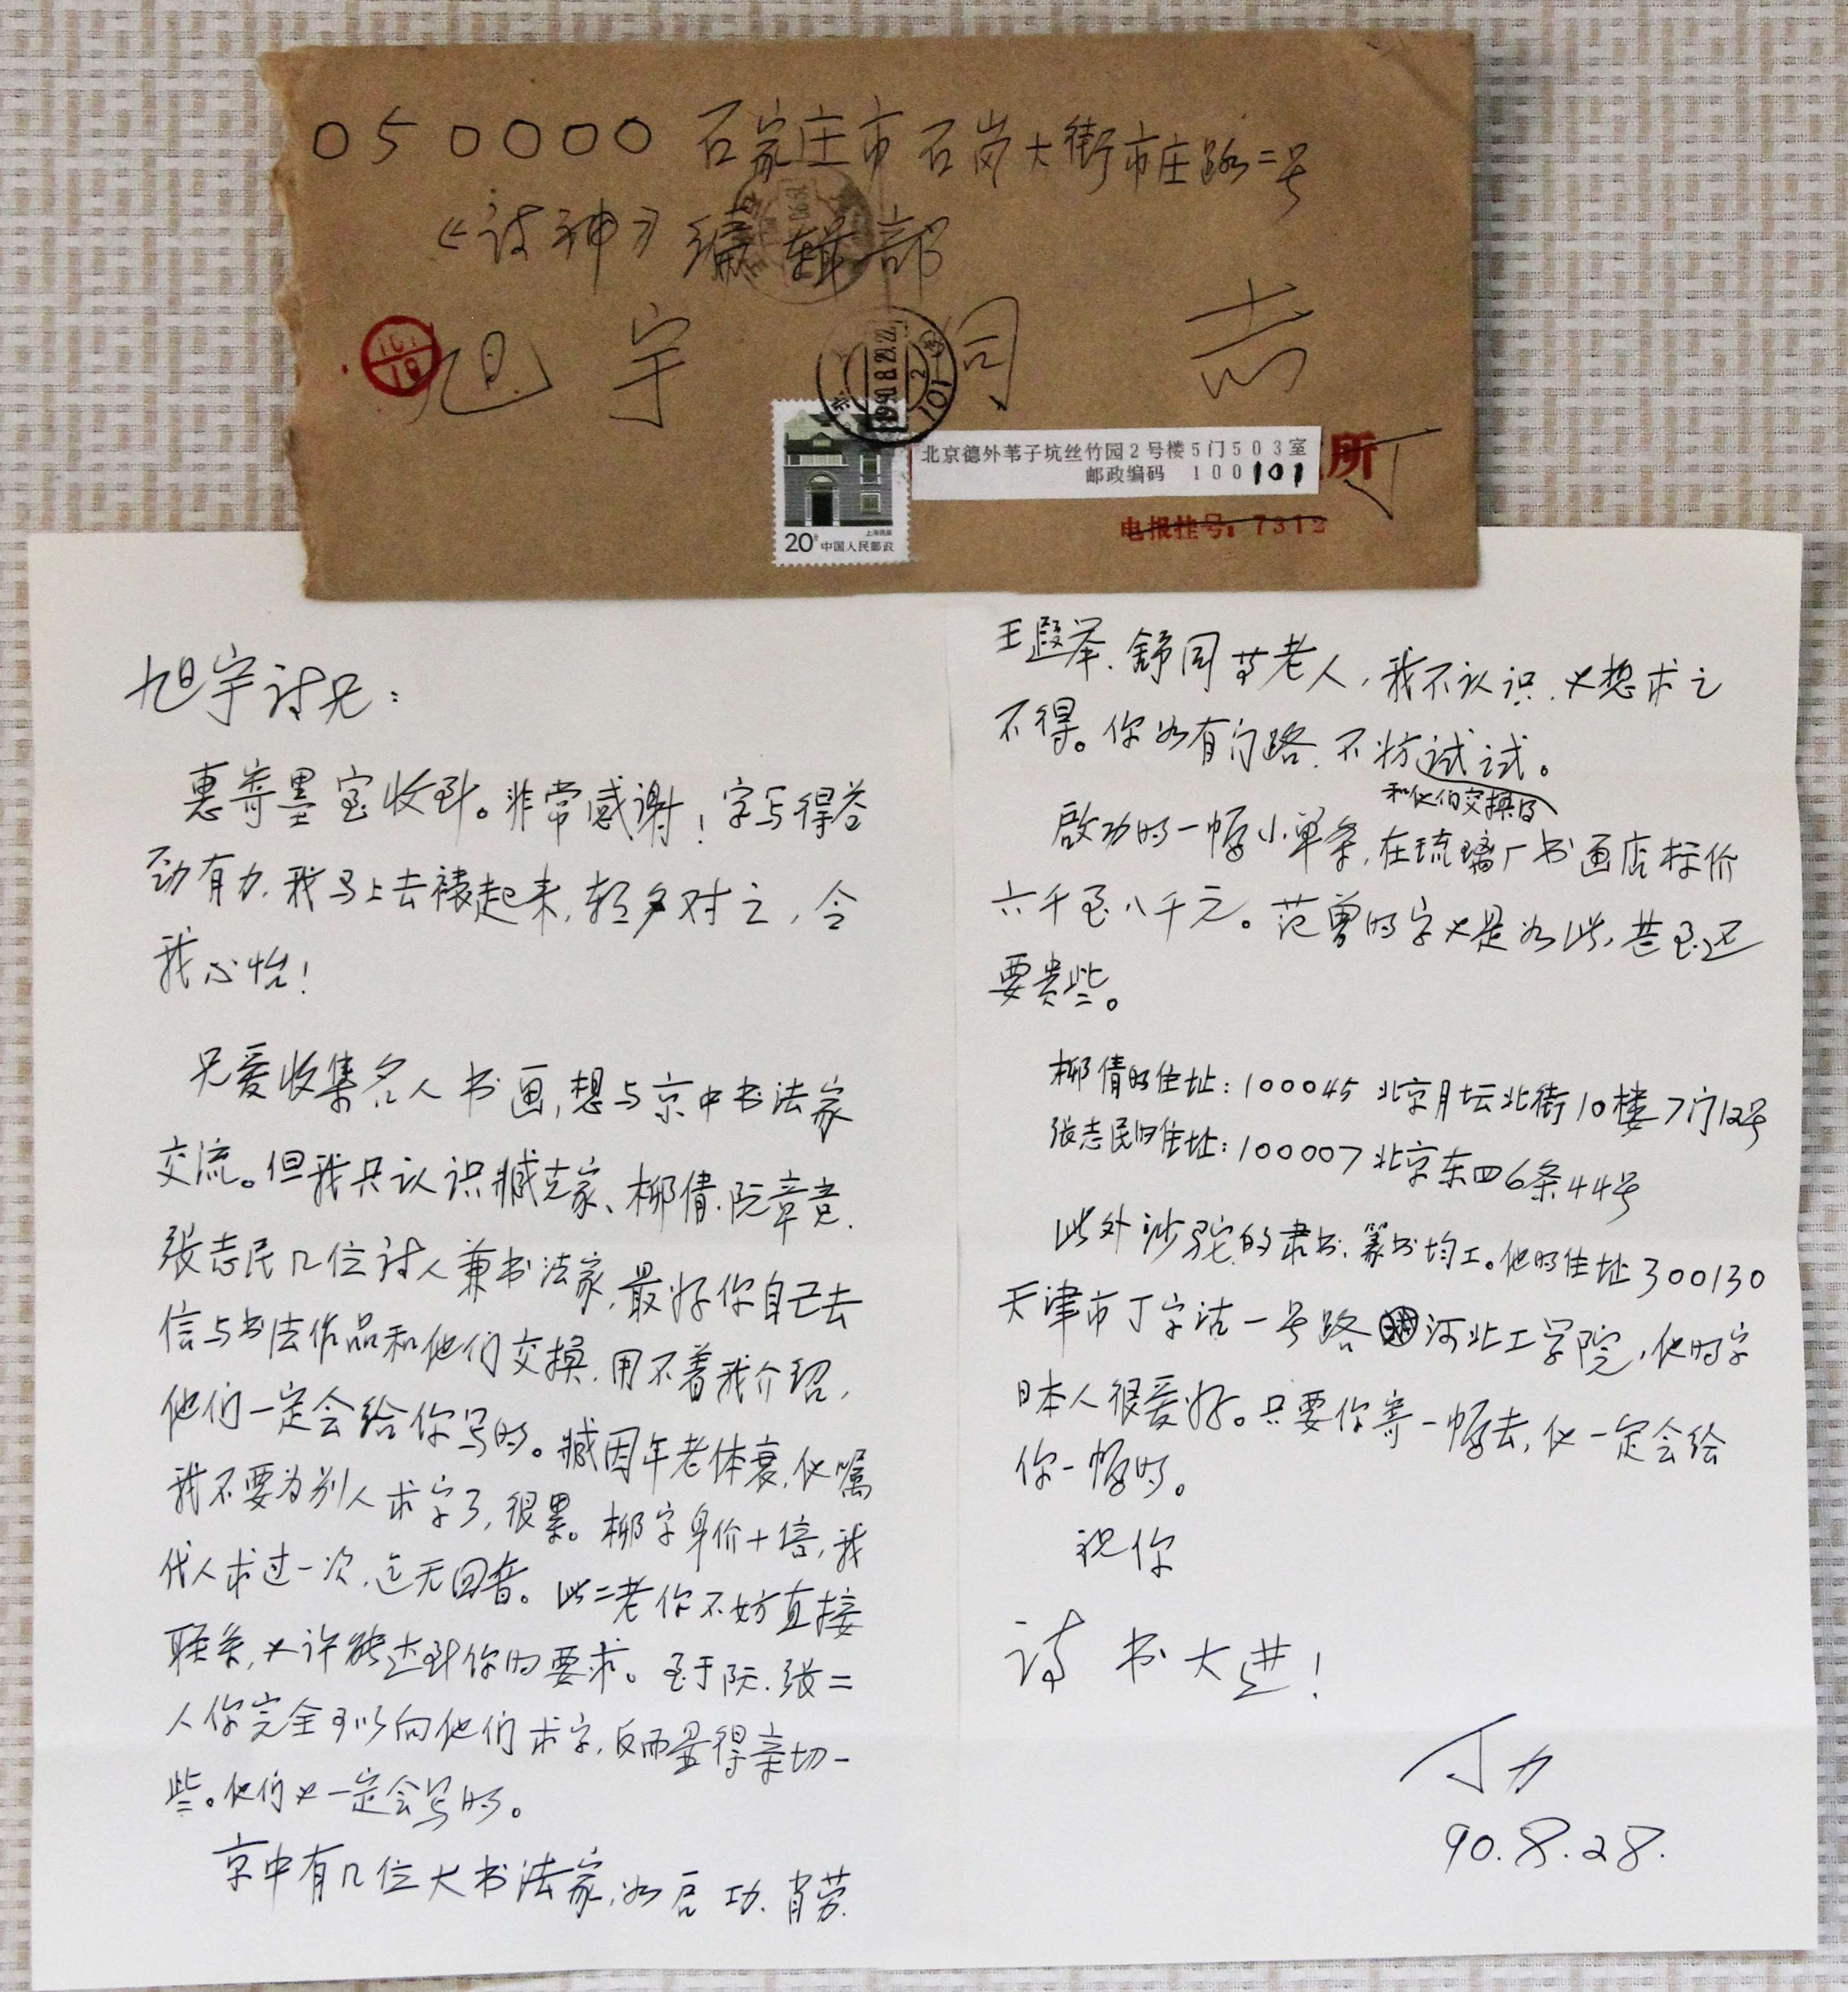 050000 石家庄市石岗大街市庄路二号
《诗神》编辑部
旭宇同志
北京德外苇子坑丝竹园2号楼5门503室
邮政编码 100101
所
丁
电报挂号：7312
20分 中国人民邮政
上海民居
1990.8.29.22
101
旭宇诗兄：
惠寄墨宝收到。非常感谢！字写得苍
劲有力，我马上去裱起来，朝夕对之，令
我心怡！
兄爱收集名人书画，想与京中书法家
交流。但我只认识臧克家、柳倩、阮章竞、
张志民几位诗人兼书法家，最好你自己去
信与书法作品和他们交换，用不着我介绍，
他们一定会给你写的。臧因年老体衰，他嘱
我不要为别人求字了，很累。柳字身价十倍，我
代人求过一次，迄无回音。此二老你不妨直接
联系，也许能达到你的要求。至于阮、张二
人你完全可以向他们求字，反而显得亲切一
些。他们也一定会写的。
京中有几位大书法家，如启功、肖劳、
王遐举、舒同等老人，我不认识，也想求之
不得。你如有门路，不妨试试。
和他们交换的
启功的一幅小单条，在琉璃厂书画店标价
六千至八千元。范曾的字也是如此，甚至还
要贵些。
柳倩的住址：100045 北京月坛北街10楼7门12号
张志民的住址：100007 北京东四6条44号
此外涉驼的隶书、篆书均工。他的住址300130
天津市丁字沽一号路河北工学院，他的字
日本人很爱好。只要你寄一幅去，他一定会给
你一幅的。
祝你
诗书大进！
丁力
90.8.28.